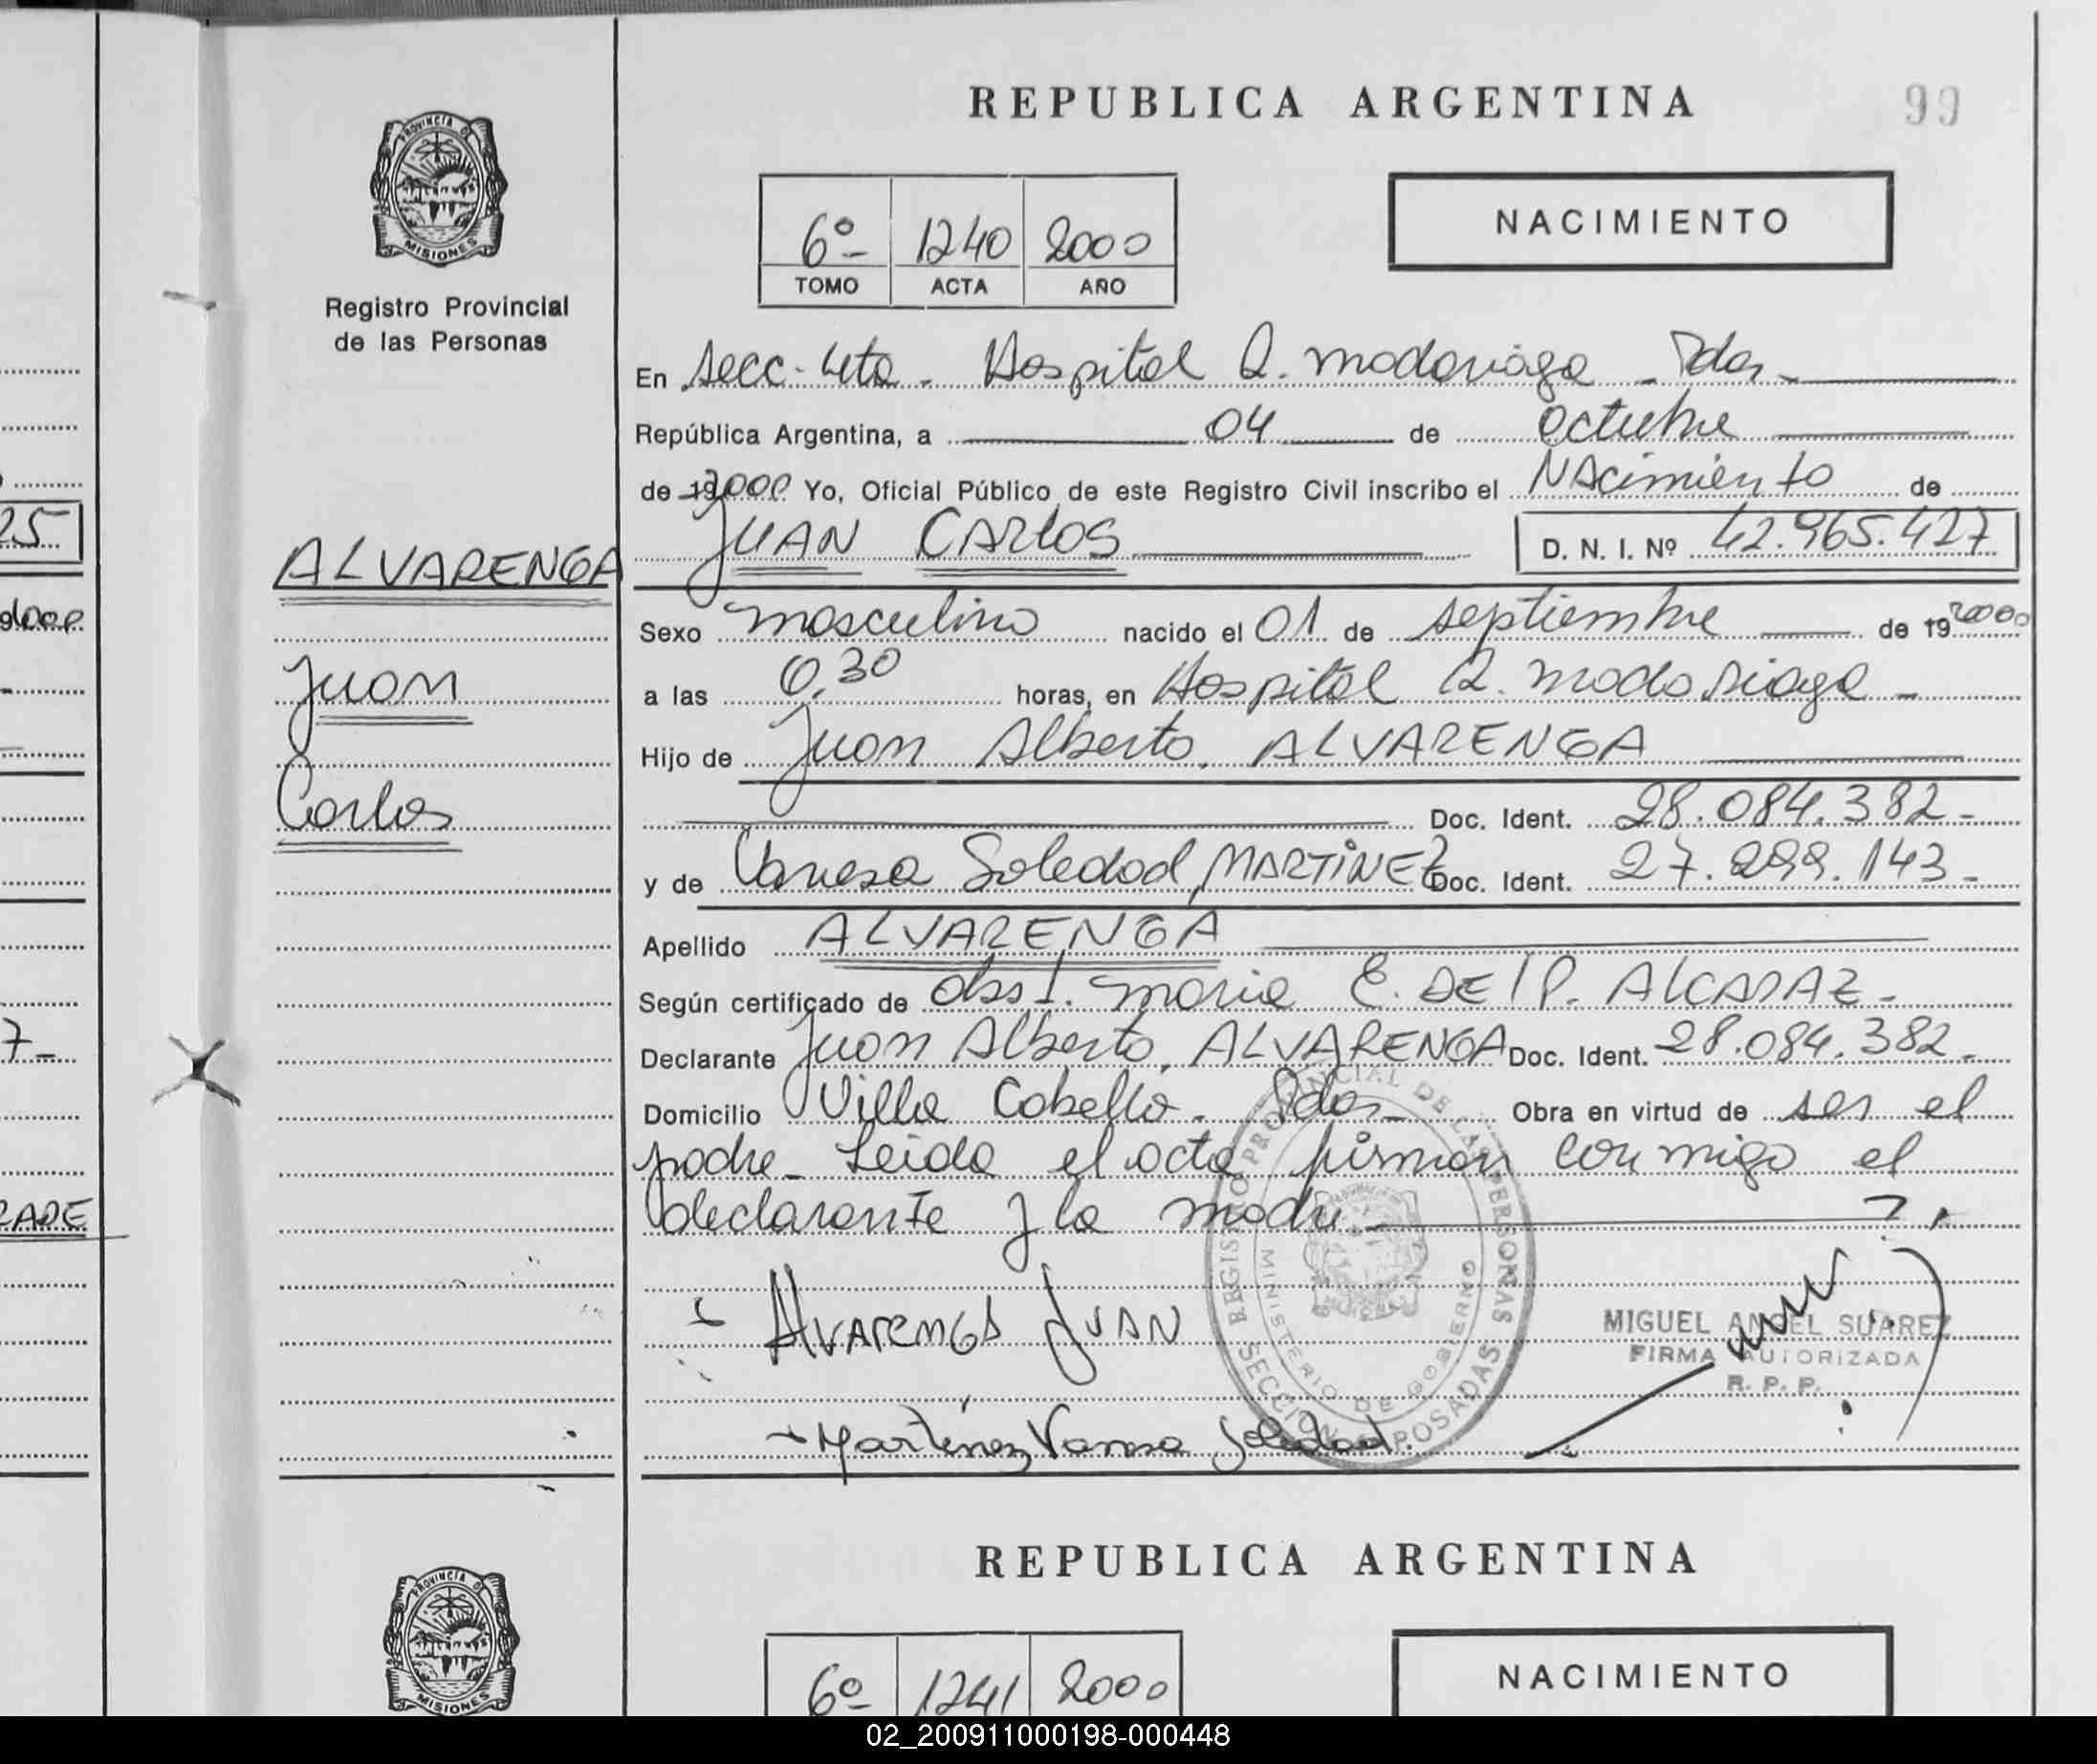 REPUBLICA ARGENTINA
99
PROVINCIA DE
MISIONES
Registro Provincial
de las Personas
6º 1240 2000
TOMO ACTA AÑO
NACIMIENTO
En Secc. 4ta. Hospital R. Madariaga - Pdas -
República Argentina, a 04 de octubre
de 192000 Yo, Oficial Público de este Registro Civil inscribo el NAcimiento de
25
ALVARENGA
JUAN CARlos D. N. I. Nº 42.965.427
2000
Sexo masculino nacido el 01 de septiembre de 19 2000
Juan
a las 0,30 horas, en Hospital R. Madariaga -
Hijo de Juan Alberto, ALVARENGA
Carlos
Doc. Ident. 28.084.382 -
y de Vanesa Soledad, MARTíNEZ Doc. Ident. 27.299.143 -
Apellido ALVARENGA
Según certificado de obst. Maria E. DE P. AlCARAZ -
7 -
Declarante Juan Alberto, ALVARENGA Doc. Ident. 28.084.382 -
Domicilio Villa Cabello - Pdas - Obra en virtud de ser el
padre - Leida el acta firman conmigo el
declarante y la madre -
REGISTRO PROVINCIAL DE LAS PERSONAS
MINISTERIO DE GOBIERNO
SECCION POSADAS
AlvArenGA JUAN
MIGUEL ANGEL SUAREZ
FIRMA AUTORIZADA
R. P. P.
- Martínez Vanesa Soledad.
REPUBLICA ARGENTINA
PROVINCIA DE
MISIONES
6º 1241 2000
NACIMIENTO
02_200911000198-000448